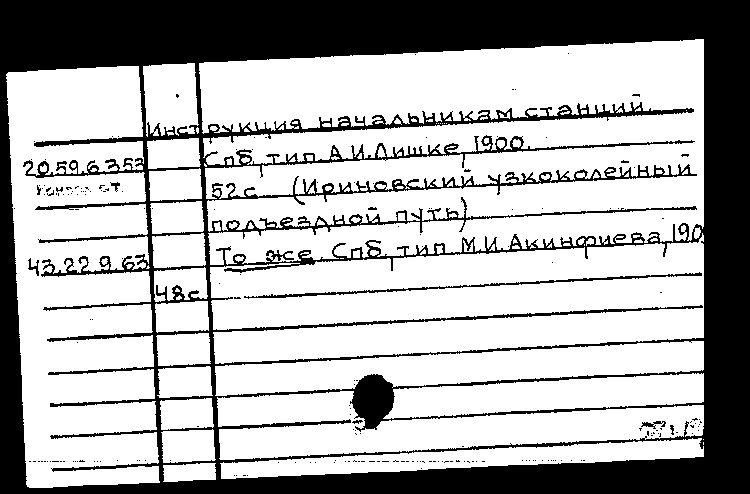 Инструкция начальникам станций.
20.59.6.353 Спб, тип. А.И.Лишке, 1900.
52с (Ириновский узкоколейный
подъездной путь)
43.22.9.63 То же. Спб, тип М.И.Акинфиева, 190
48с.